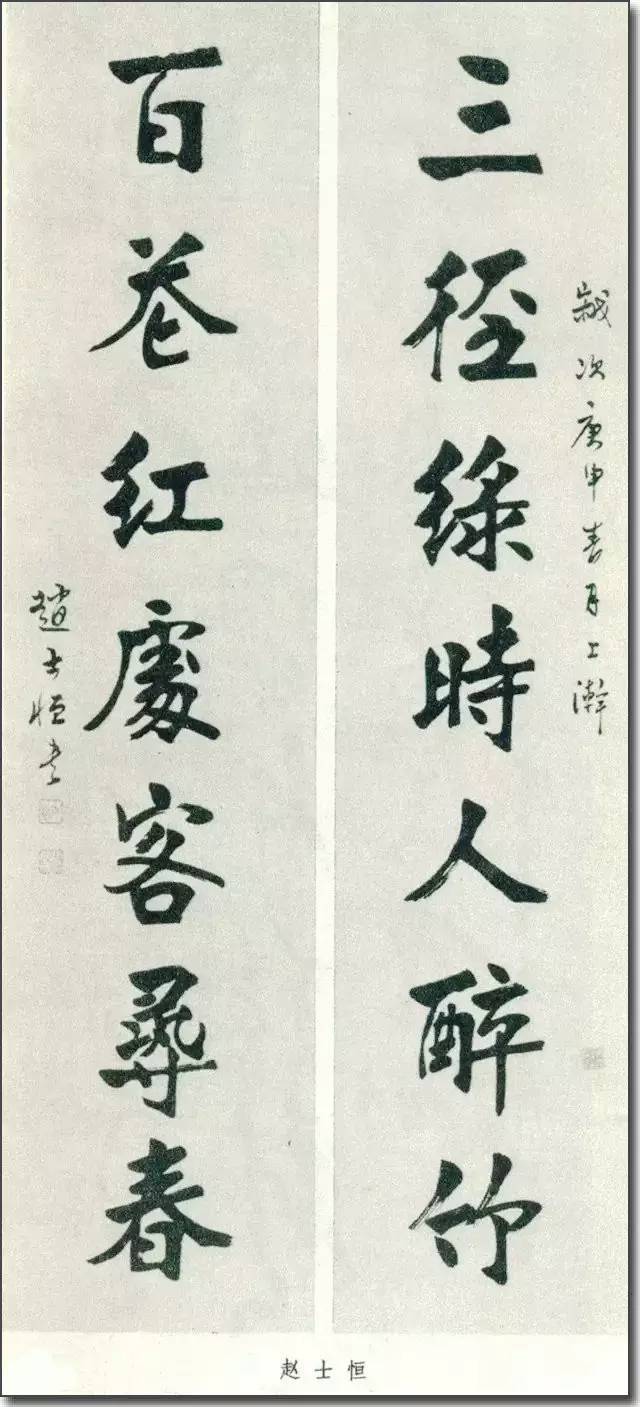 歲次庚申春月上澣
三徑綠時人醉竹
百巷紅處客尋春
趙士恒書
赵士恒